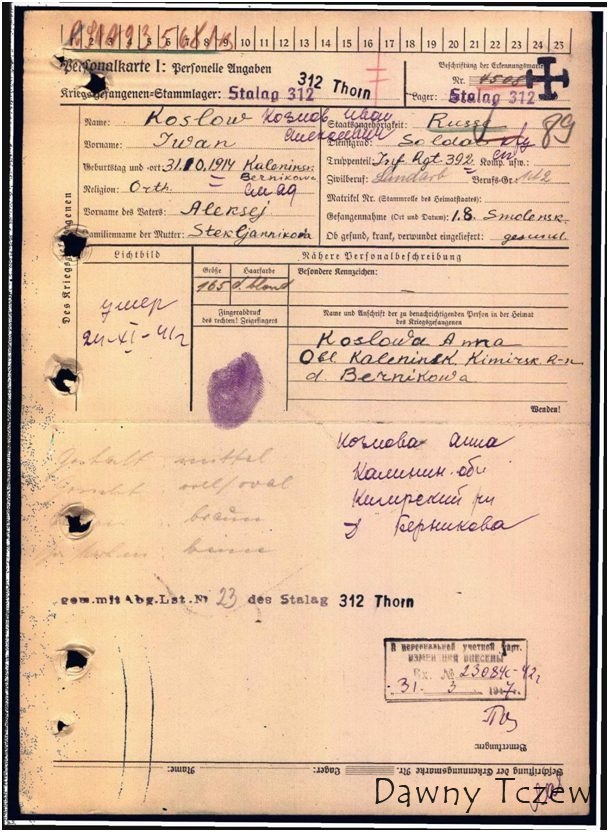 1 2 3 4 5 6 7 8 9 10 11 12 13 14 15 16 17 18 19 20 21 22 23 24 25
Personalkarte I: Personelle Angaben
Beschriftung der Erkennungsmarke
Kriegsgefangenen-Stammlager: Stalag 312
312 Thorn
Nr.
Lager: Stalag 312
Des Kriegsgefangenen
Name: Koslow Козлов Иван
Staatsangehörigkeit: Russe
89
Vorname: Iwan
Dienstgrad: Soldat
Geburtstag und -ort 31.10.1914 Kaleninsk.
Bernikowa
Truppenteil: Inf. Rgt. 392 Komp. usw.:
Religion: Orth.
Zivilberuf: Landarb Berufs-Gr.: 112
Matrikel Nr. (Stammrolle des Heimatstaates):
Vorname des Vaters: Aleksej
Gefangennahme (Ort und Datum): 1.8. Smolensk.
Familienname der Mutter: Stekljannikowa
Ob gesund, krank, verwundet eingeliefert: gesund.
Lichtbild
Nähere Personalbeschreibung
Größe
Haarfarbe
Besondere Kennzeichen: —
165 d. blond
умер
24-XI-41г
Fingerabdruck
des rechten! Zeigefingers
Name und Anschrift der zu benachrichtigenden Person in der Heimat
des Kriegsgefangenen
Koslowa Anna
Obl Kaleninsk. Kimirsk. R-n
d. Bernikowa
Wenden!
Козлова Анна
Калинин. обл
Кимирский р-н
д Берникова
Gestalt mittel
oval/oval
braun
gem.mit Abg.Lst.Nr 23 des Stalag 312 Thorn
В персональной учетной карт.
ИЗМЕНЕНИЯ ВНЕСЕНЫ
Вх. №
31. 3 1947г.
Bemerkungen:
Beschriftung der Erkennungsmarke Nr. Lager: Name:
Dawny Tczew